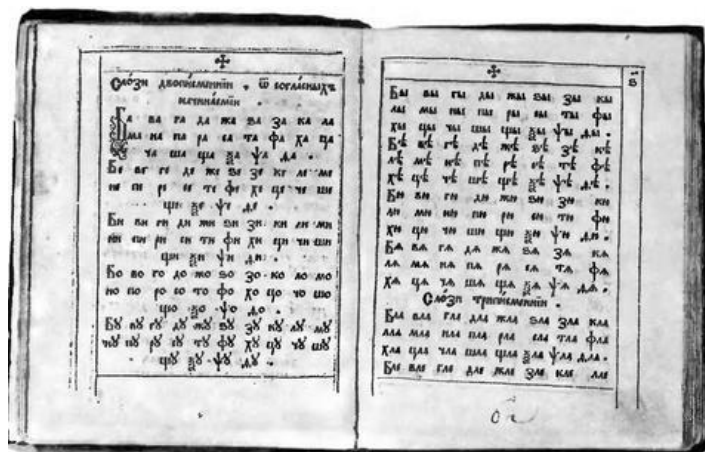 Сло́зи двописме́ннїи . ѿ согла́сныхъ
начина́емїи .
Ба ва га да жа ѕа за ка ла
ма на па ра са та фа ха ца
ча ша ща ѯа ѱа ѳа .
Бе ве ге де же ѕе зе ке ле ме
не пе ре се те фе хе це че ше
ще ѯе ѱе ѳе .
Би ви ги ди жи ѕи зи ки ли ми
ни пи ри си ти фи хи ци чи ши
щи ѯи ѱи ѳи .
Бо во го до жо ѕо зо ко ло мо
но по ро со то фо хо цо чо шо
що ѯо ѱо ѳо .
Бꙋ вꙋ гꙋ дꙋ жꙋ ѕꙋ зꙋ кꙋ лꙋ мꙋ
нꙋ пꙋ рꙋ сꙋ тꙋ фꙋ хꙋ цꙋ чꙋ шꙋ
щꙋ ѯꙋ ѱꙋ ѳꙋ .
ѕ
Бы вы гы ды жы ѕы зы кы
лы мы ны пы ры сы ты фы
хы цы чы шы щы ѯы ѱы ѳы .
Бѣ вѣ гѣ дѣ жѣ ѕѣ зѣ кѣ
лѣ мѣ нѣ пѣ рѣ сѣ тѣ фѣ
хѣ цѣ чѣ шѣ щѣ ѯѣ ѱѣ ѳѣ .
Бю вю гю дю жю ѕю зю кю
лю мю ню пю рю сю тю фю
хю цю чю шю щю ѯю ѱю ѳю .
Бѧ вѧ гѧ дѧ жѧ ѕѧ зѧ кѧ
лѧ мѧ нѧ пѧ рѧ сѧ тѧ фѧ
хѧ цѧ чѧ шѧ щѧ ѯѧ ѱѧ ѳѧ .
Сло́зи триписме́ннїи .
Бла вла гла дла жла ѕла зла кла
лла мла нла пла рла сла тла фла
хла цла чла шла щла ѯла ѱла ѳла .
Бле вле гле дле жле зле кле лле